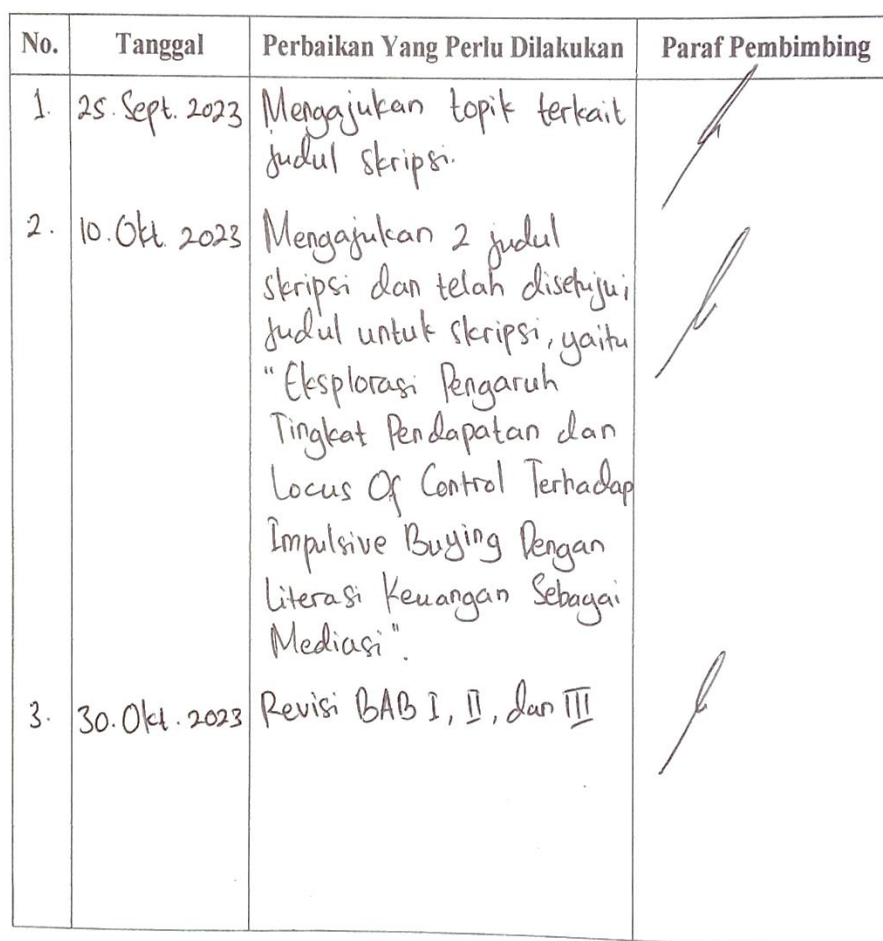 No. Tanggal Perbaikan Yang Perlu Dilakukan Paraf Pembimbing
1. 25. Sept. 2023 Mengajukan topik terkait
judul skripsi.
2. 10. Okt. 2023 Mengajukan 2 judul
skripsi dan telah disetujui
judul untuk skripsi, yaitu
"Eksplorasi Pengaruh
Tingkat Pendapatan dan
Locus Of Control Terhadap
Impulsive Buying Dengan
Literasi Keuangan Sebagai
Mediasi".
3. 30. Okt. 2023 Revisi BAB I, II, dan III